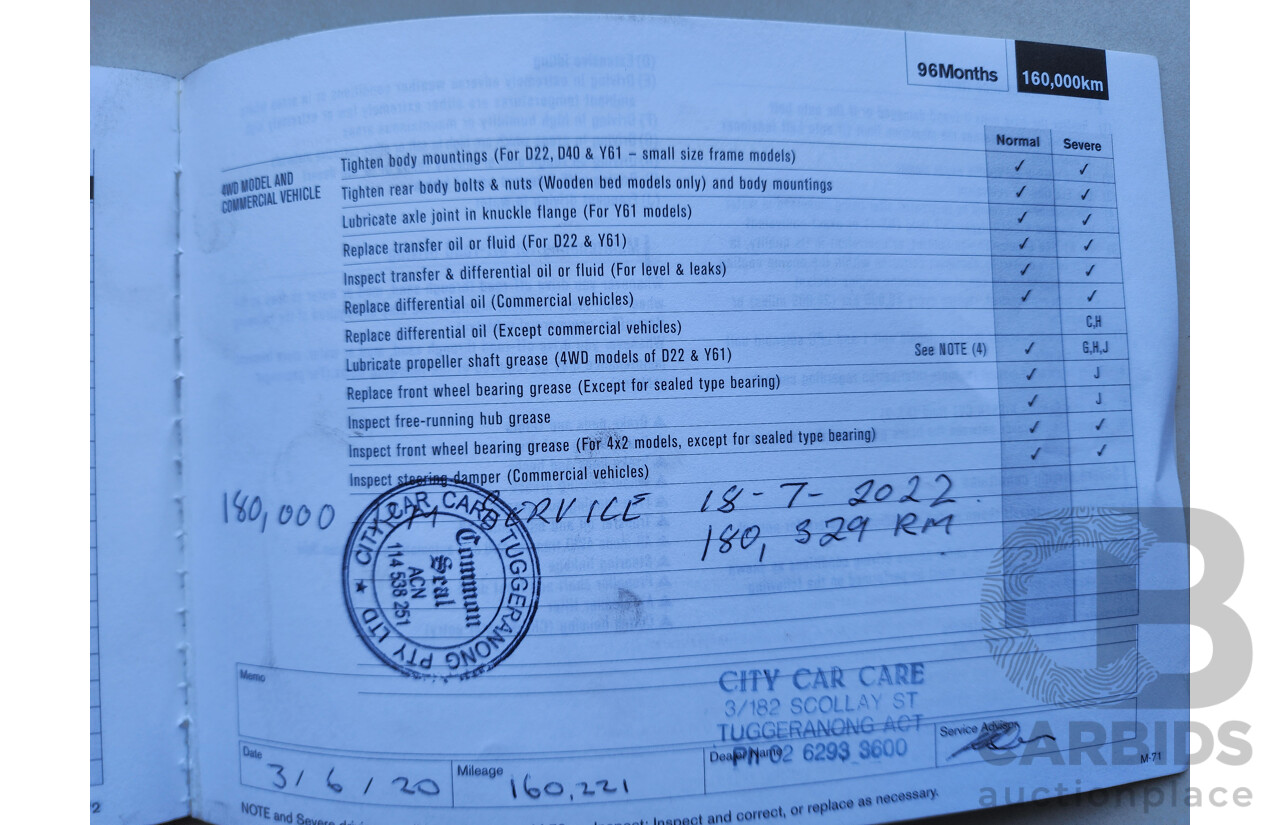 96Months 160,000km
Normal Severe
4WD MODEL AND
COMMERCIAL VEHICLE
Tighten body mountings (For D22, D40 & Y61 – small size frame models) ✓ ✓
Tighten rear body bolts & nuts (Wooden bed models only) and body mountings ✓ ✓
Lubricate axle joint in knuckle flange (For Y61 models) ✓ ✓
Replace transfer oil or fluid (For D22 & Y61) ✓ ✓
Inspect transfer & differential oil or fluid (For level & leaks) ✓ ✓
Replace differential oil (Commercial vehicles) ✓ ✓
Replace differential oil (Except commercial vehicles) C,H
Lubricate propeller shaft grease (4WD models of D22 & Y61) See NOTE (4) ✓ G,H,J
Replace front wheel bearing grease (Except for sealed type bearing) ✓ J
Inspect free-running hub grease ✓ J
Inspect front wheel bearing grease (For 4x2 models, except for sealed type bearing) ✓ ✓
Inspect steering damper (Commercial vehicles) ✓ ✓
180,000 KM SERVICE 18-7-2022
180,329 KM
★ CITY CAR CARE TUGGERANONG PTY LTD
Common
Seal
ACN
114 538 251
Memo
CITY CAR CARE
3/182 SCOLLAY ST
TUGGERANONG ACT
PH 02 6293 3600
Date 3/6/20
Mileage 160,221
Dealer Name
Service Advisor
M-71
NOTE and Severe
Inspect: Inspect and correct, or replace as necessary.
CARBIDS
auctionplace